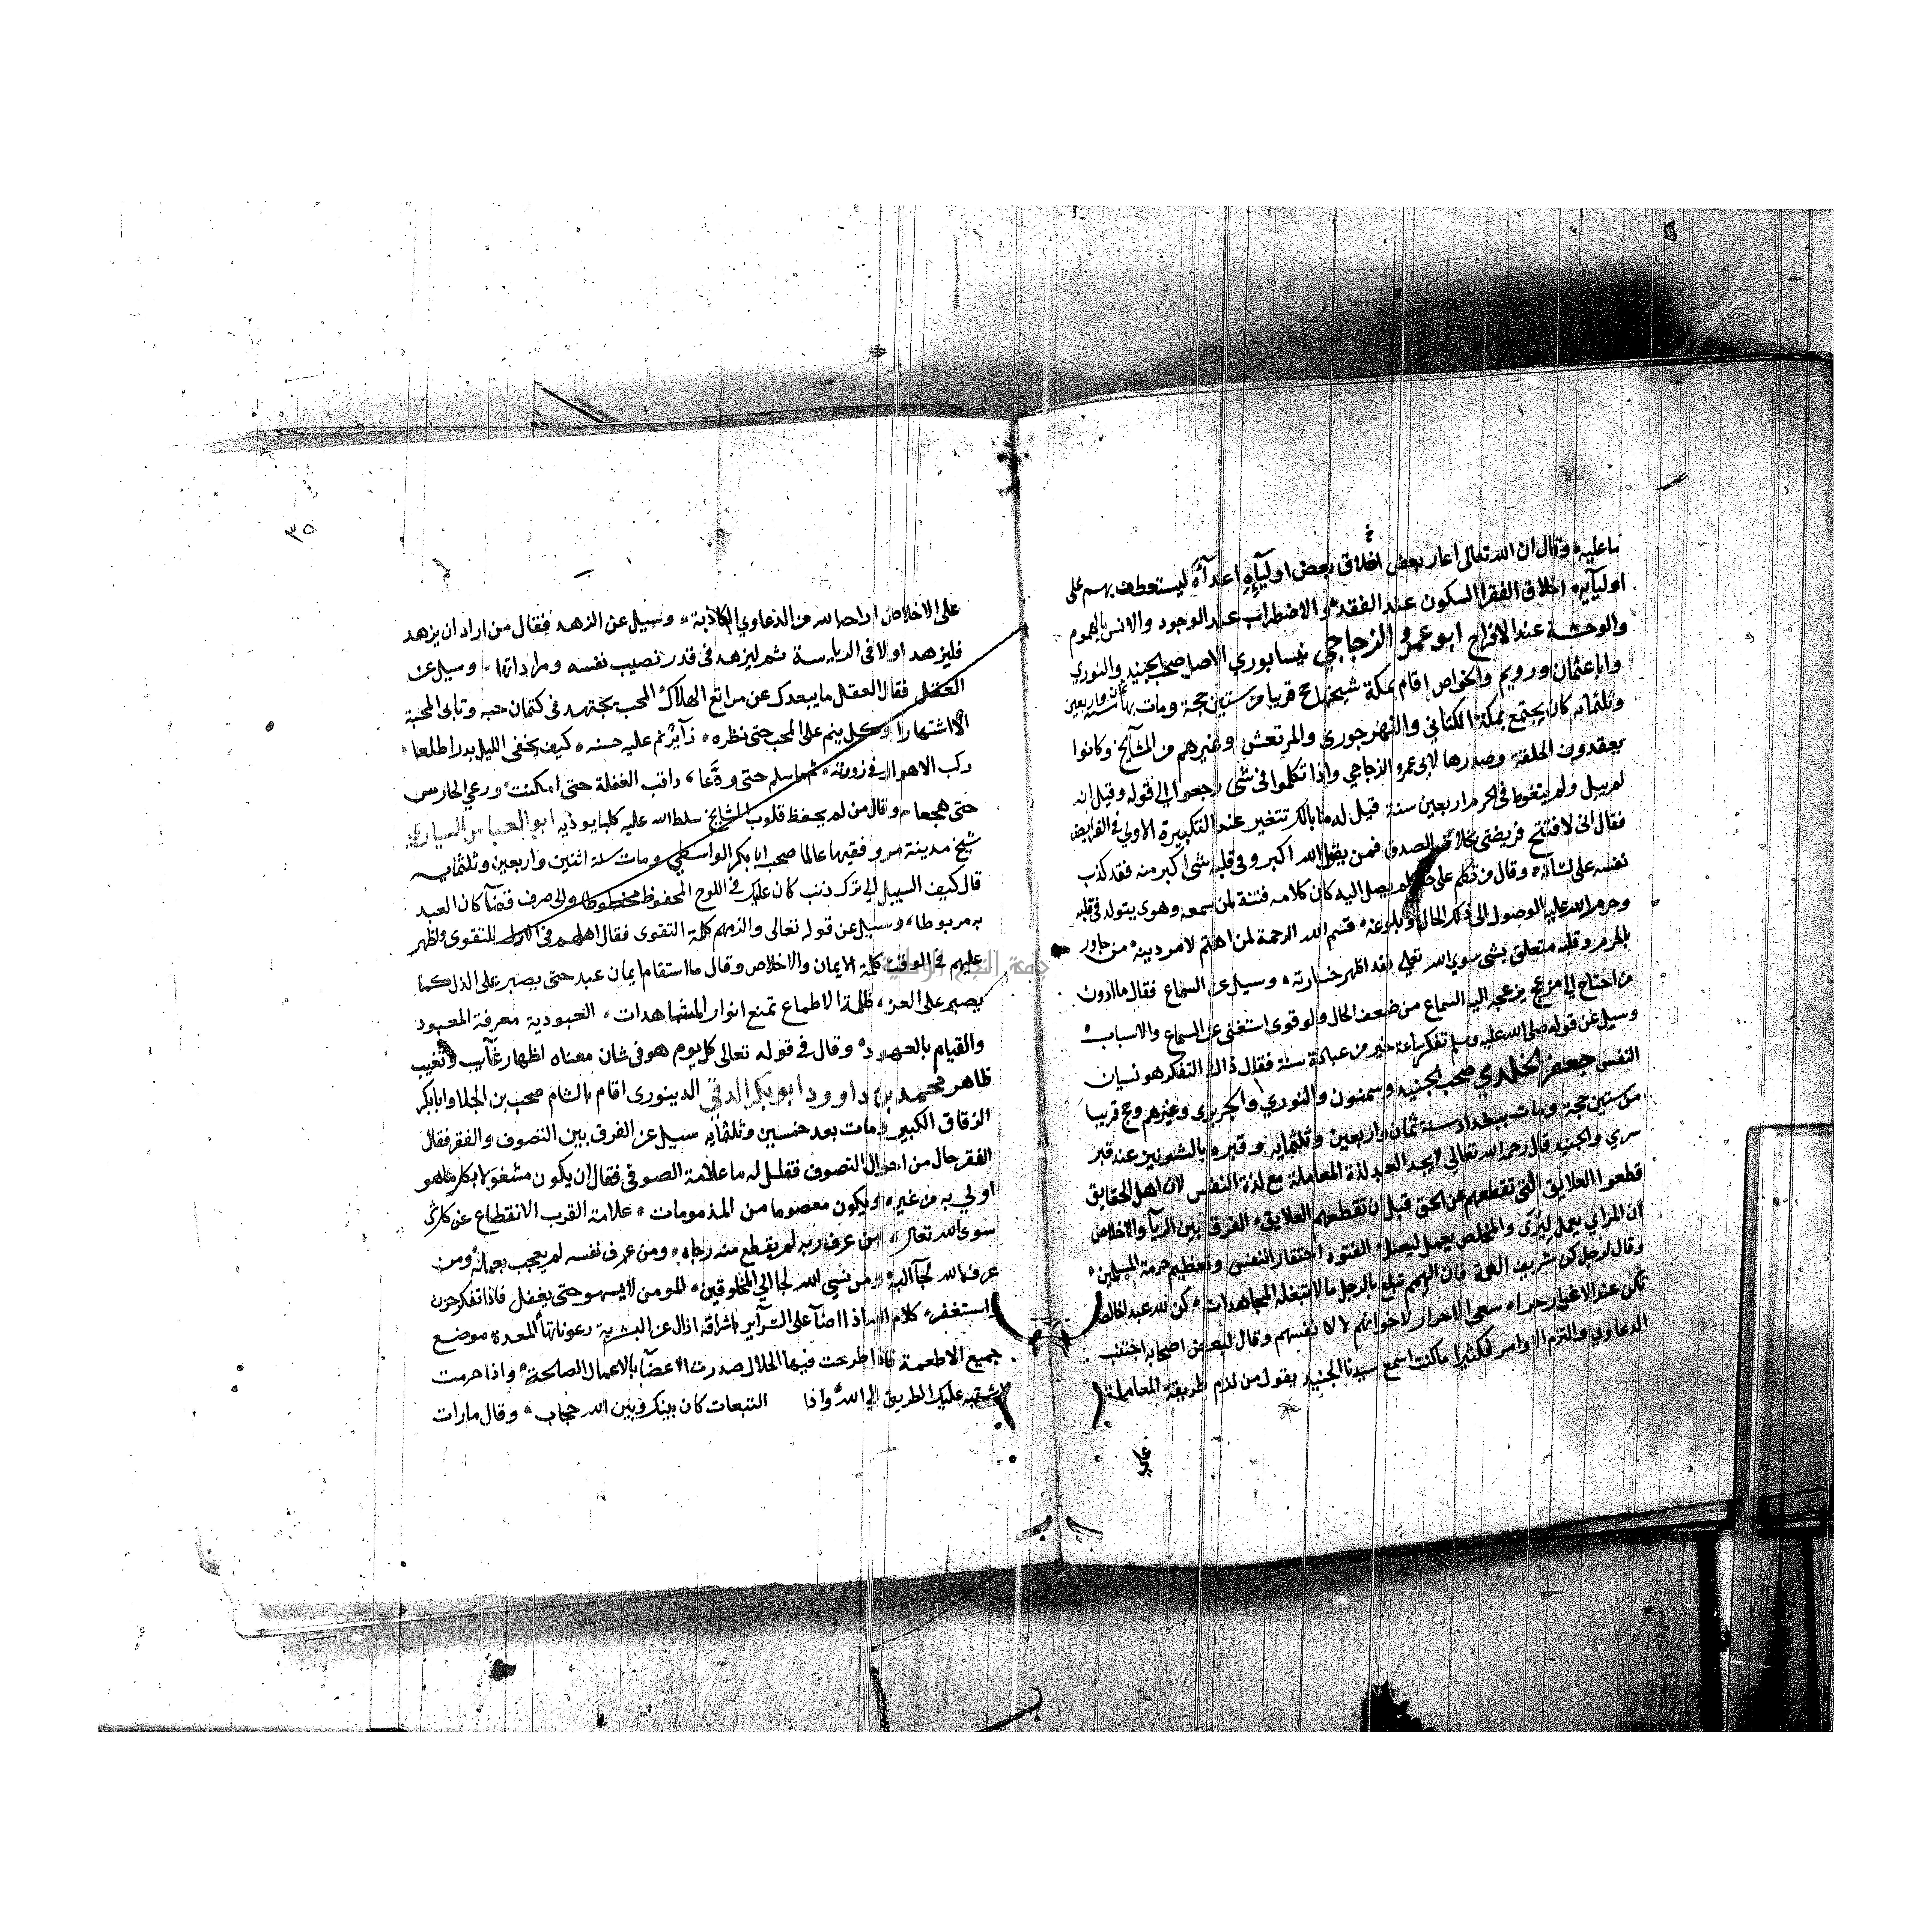 ما عليه وقال ان الله تعالى اعار بعض اخلاق بعض اوليآيه اعدآه ليستعطف بهم على
اوليآيه اخلاق الفقرا السكون عند الفقد والاضطراب عند الوجود والانس بالهموم
والوحشة عند الافراح ابو عمرو الزجاجي نيسابوري الاصل صحب الجنيد والنوري
وابا عثمان ورويم والخواص اقام بمكة شيخها حج قريبا من ستين حجة ومات بها سنة ثمان واربعين
وثلثمايه كان يجتمع بمكة الكتاني والنهرجوري والمرتعش وغيرهم من المشايخ وكانوا
يعقدون الحلقة وصدرها لابى عمرو الزجاجي واذا تكلموا فى شى رجعوا الى قوله وقيل انه
لم يبل ولم يتغوط فى الحرم اربعين سنة قيل له ما بالك تتغير عند التكبيرة الاولي فى الفرايض
فقال انى لافتتح فريضتى بخلاف الصدق فمن يقول الله اكبر وفى قلبه شى اكبر منه فقد كذب
نفسه على لسانه وقال من تكلم على حال لم يصل اليه كان كلامه فتنة لمن سمعه وهوى يتولد فى قلبه
وحرم الله عليه الوصول الى ذلك الحال وبلوغه قسم الله الرحمة لمن اهتم لامر دينه من جاور
بالحرم وقلبه متعلق بشى سوي الله تعالى فقد اظهر خسارته وسيل عن السماع فقال ما ادون
من احتاج الى مزعج يزعجه اليه السماع من ضعف الحال ولو قوى استغنى عن السماع والاسباب
وسيل عن قوله صلى الله عليه وسلم تفكر ساعة خير من عبادة سنة فقال ذاك التفكر هو نسيان
النفس جعفر الخلدي صحب الجنيد وسمنون والنوري والجريري وغيرهم وحج قريبا
من ستين حجة ومات ببغداد سنة ثمان واربعين وثلثمايه وقبره بالشونيز عند قبر
سري والجنيد قال رحمه الله تعالى لا يجد العبد لذة المعاملة مع لذة النفس لان اهل الحقايق
قطعوا العلايق التى تقطعهم عن الحق قبل ان تقطعهم العلايق الفرق بين الريآ والاخلاص
ان المرائي يعمل ليُرَى والمخلص يعمل ليصل الفتوه احتقار النفس وتعظيم حرمة المسلمين
وقال لرجل كن شريف الهمة فان الهمم تبلغ بالرجل ما لا تبلغه المجاهدات كن لله عبدا خالصا
تكن عند الاغيار حرا سعى الاحرار لاخوانهم لا لانفسهم وقال لبعض اصحابه اجتنب
الدعاوي والتزم الاوامر فكثيرا ما كنت اسمع سيدنا الجنيد يقول من لزم طريقة المعاملة
على
٣٥
على الاخلاص اراحه الله من الدعاوي الكاذبة وسيل عن الزهد فقال من اراد ان يزهد
فليزهد اولا فى الرياسة ثم ليزهد فى قدر نصيب نفسه ومراداتها وسيل عن
العقل فقال العقل ما يبعدك عن مراتع الهلاك المحب يجتهد فى كتمان حبه وتابى المحبة
الا اشتهارا وكل ينم على المحب حتى نظره زآير نم عليه حسنه كيف يخفى الليل بدرا طلعا
ركب الاهوال فى زورته ثم ما سلم حتى ودّعا راقب الغفلة حتى امكنت ورعي الحارس
حتى هجعا وقال من لم يحفظ قلوب المشايخ سلط الله عليه كلبا يوذيه ابو العباس السياري
شيخ مدينة مرو فقيها عالما صحب ابا بكر الواسطي ومات سنة اثنين واربعين وثلثمايه
قال كيف السبيل الي ترك ذنب كان عليك فى اللوح المحفوظ مخطوطا والى صرف قضآ كان العبد
به مربوطا وسيل عن قوله تعالى والزمهم كلمة التقوى فقال اهلهم فى الازل للتقوى واظهر
عليهم فى الوقت كلمة الايمان والاخلاص وقال ما استقام ايمان عبد حتى يصبر على الذل كما
يصبر على العز ظلمة الاطماع تمنع انوار المشاهدات العبودية معرفة المعبود
والقيام بالعهود وقال فى قوله تعالى كل يوم هو فى شان معناه اظهار غآيب وتغيب
ظاهر محمد بن داوود ابو بكر الدقى الدينورى اقام بالشام صحب بن الجلا وابا بكر
الزقاق الكبير ومات بعد خمسين وثلثمايه سيل عن الفرق بين التصوف والفقر فقال
الفقر حال من احوال التصوف فقيل له ما علامة الصوفى فقال ان يكون مشغولا بكل ما هو
اولي به من غيره ويكون معصوما من المذمومات علامة القرب الانقطاع عن كل شى
سوى الله تعالى من عرف ربه لم يقطع منه رجاه ومن عرف نفسه لم يعجب بعمله ومن
عرف الله لجآ اليه ومن نسي الله لجا الي المخلوقين المومن لا يسهو حتى يغفل فاذا تفكر حزن
واستغفر كلام الله اذا اضآ على السرآير باشراقه ازال عن البشرية رعوناتها المعده موضع
جميع الاطعمة فاذا طرحت فيها الحلال صدرت الاعضآ بالاعمال الصالحة واذا حرمت
اشتبه عليك الطريق الي الله واذا التبعات كان بينك وبين الله حجاب وقال مارات